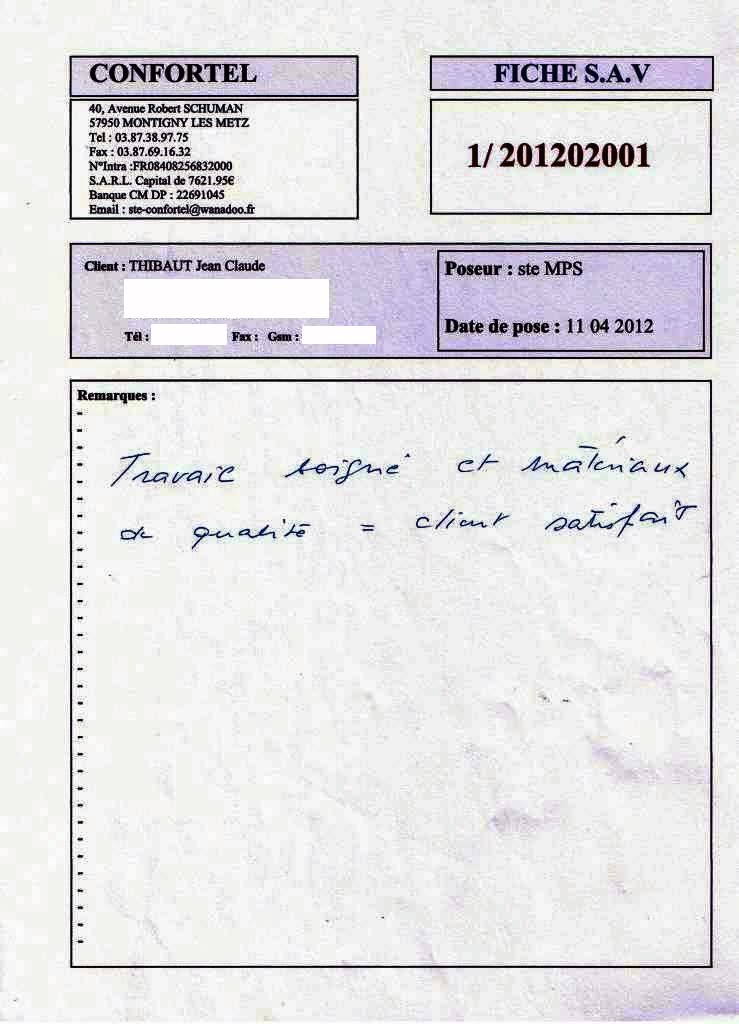 CONFORTEL
FICHE S.A.V
40, Avenue Robert SCHUMAN
57950 MONTIGNY LES METZ
Tel : 03.87.38.97.75
Fax : 03.87.69.16.32
N°Intra :FR08408256832000
S.A.R.L. Capital de 7621.95€
Banque CM DP : 22691045
Email : ste-confortel@wanadoo.fr
1/ 201202001
Client : THIBAUT Jean Claude
Tél : Fax : Gsm :
Poseur : ste MPS
Date de pose : 11 04 2012
Remarques :
Travail soigné et matériaux
de qualité = client satisfait